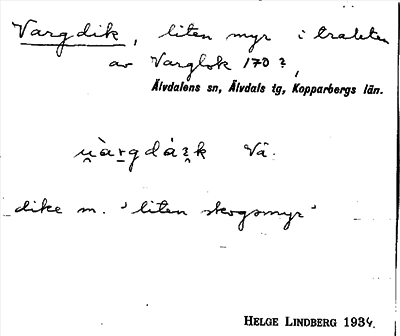 Vargdik, liten myr i trakten
av Varglok 170 ?,
Älvdalens sn, Älvdals tg, Kopparbergs län.
Vä.
dike m. 'liten skogsmyr'
HELGE LINDBERG 1934.